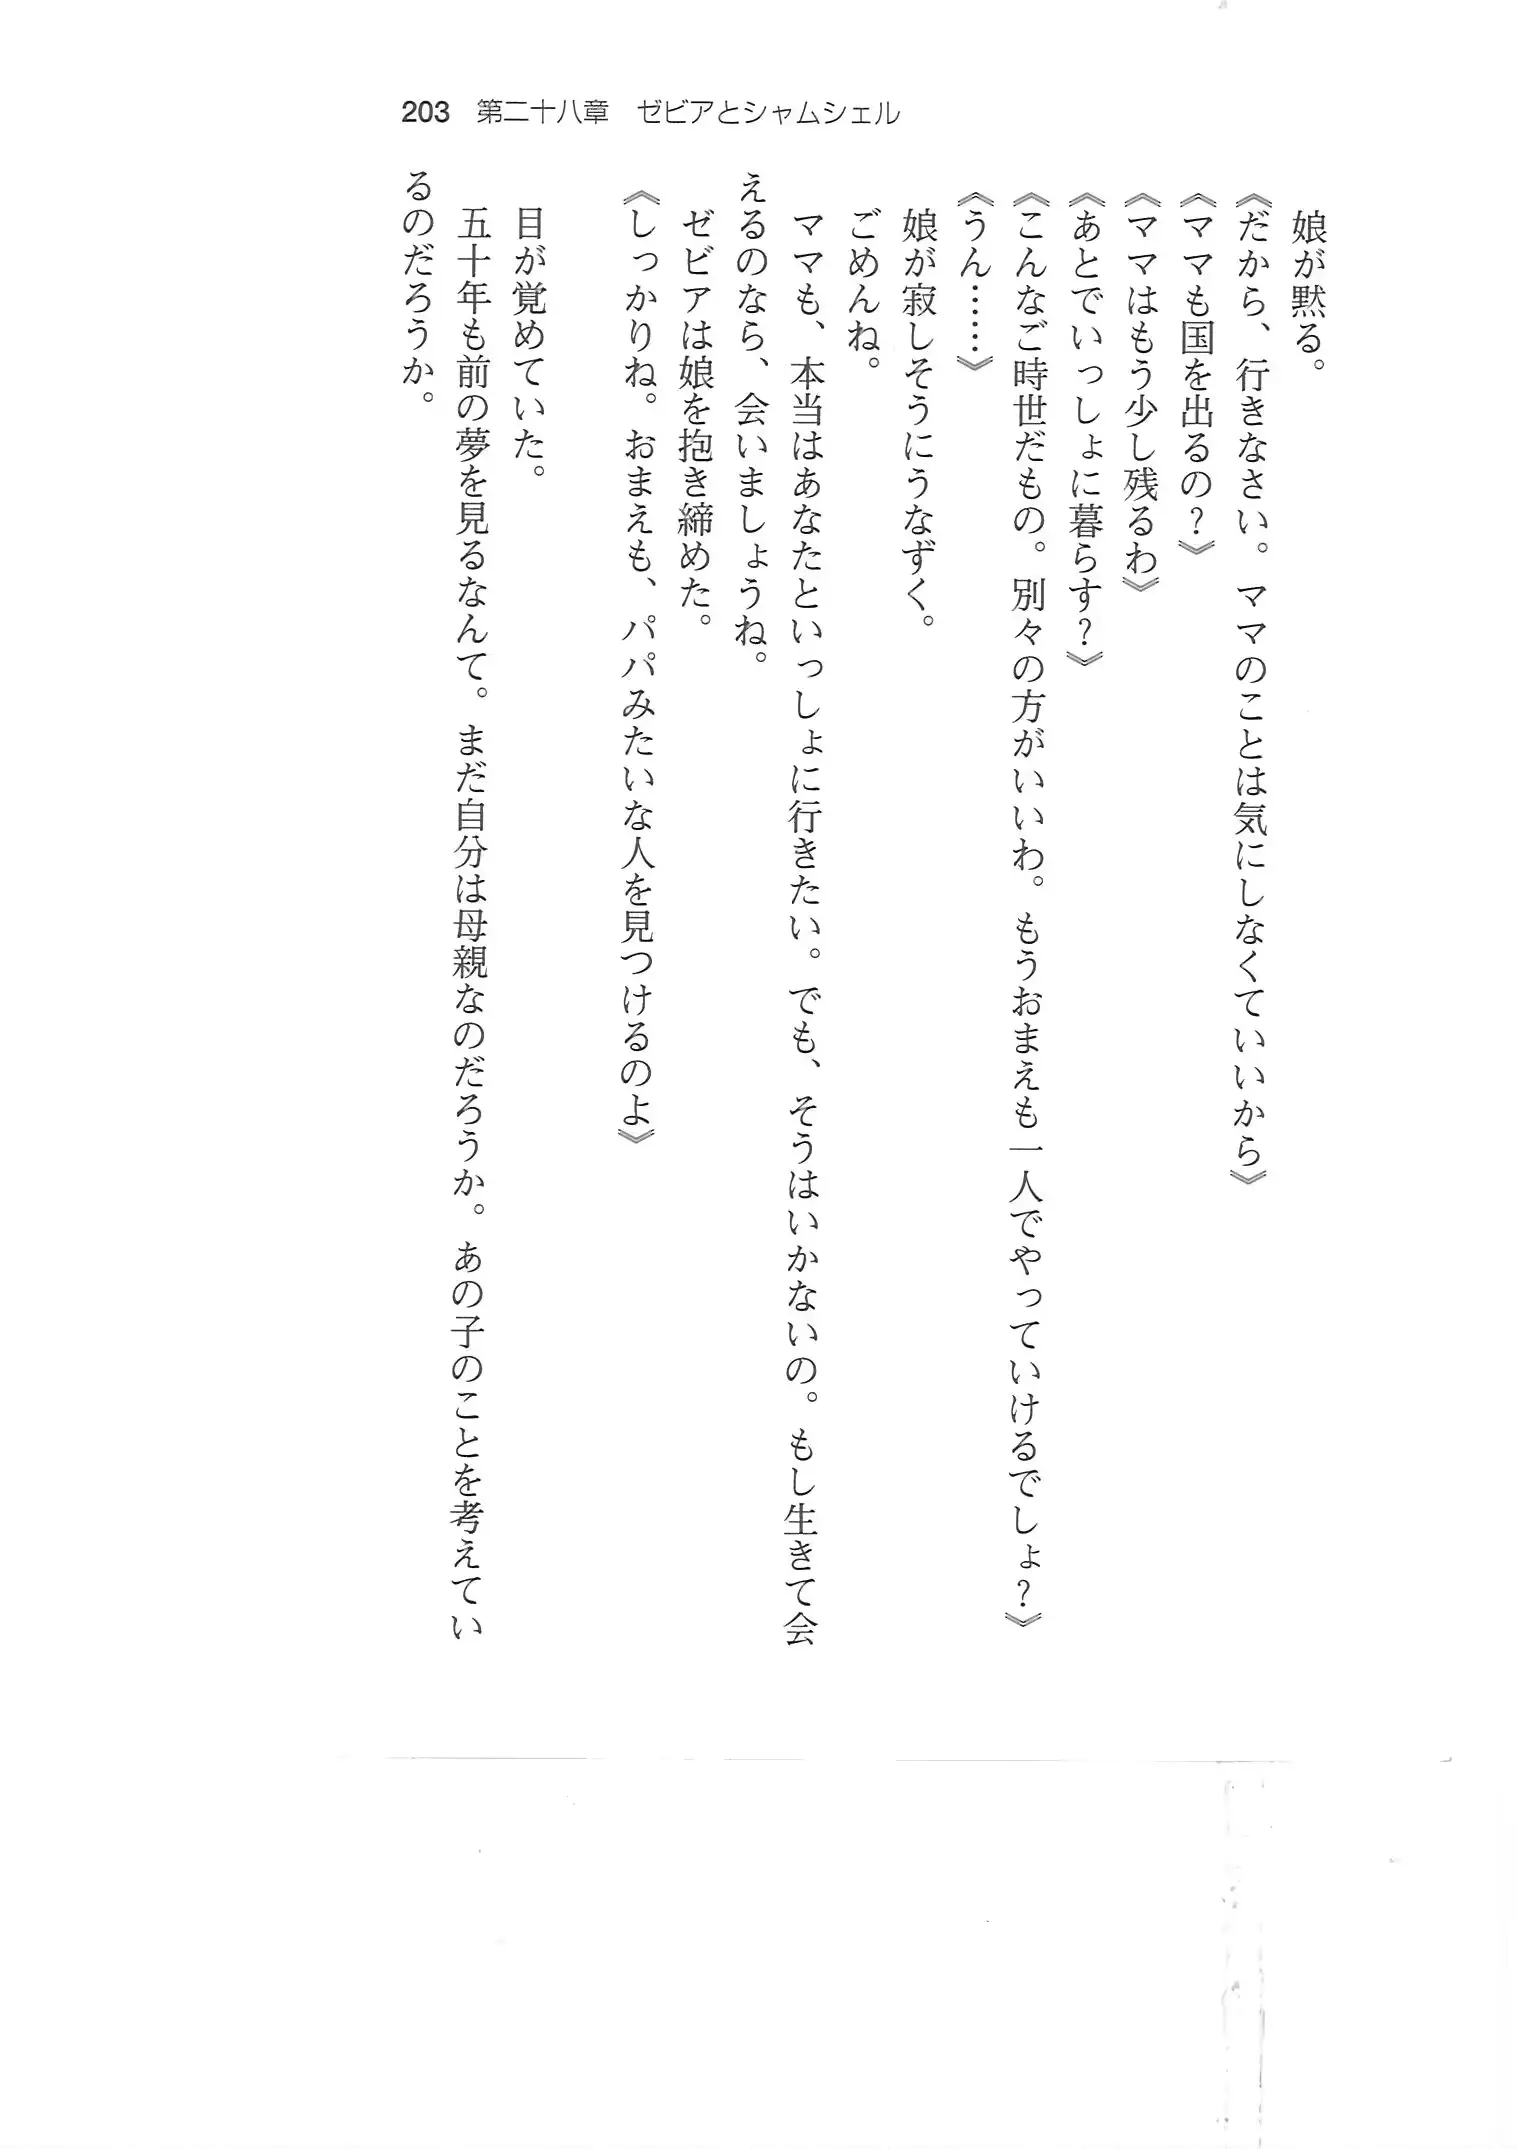 203 第二十八章 ゼビアとシャムシェル
娘が黙る。
《だから、行きなさい。ママのことは気にしなくていいから》
《ママも国を出るの？》
《ママはもう少し残るわ》
《あとでいっしょに暮らす？》
《こんなご時世だもの。別々の方がいいわ。もうおまえも一人でやっていけるでしょ？》
《うん……》
娘が寂しそうにうなずく。
ごめんね。
ママも、本当はあなたといっしょに行きたい。でも、そうはいかないの。もし生きて会
えるのなら、会いましょうね。
ゼビアは娘を抱き締めた。
《しっかりね。おまえも、パパみたいな人を見つけるのよ》
目が覚めていた。
五十年も前の夢を見るなんて。まだ自分は母親なのだろうか。あの子のことを考えてい
るのだろうか。